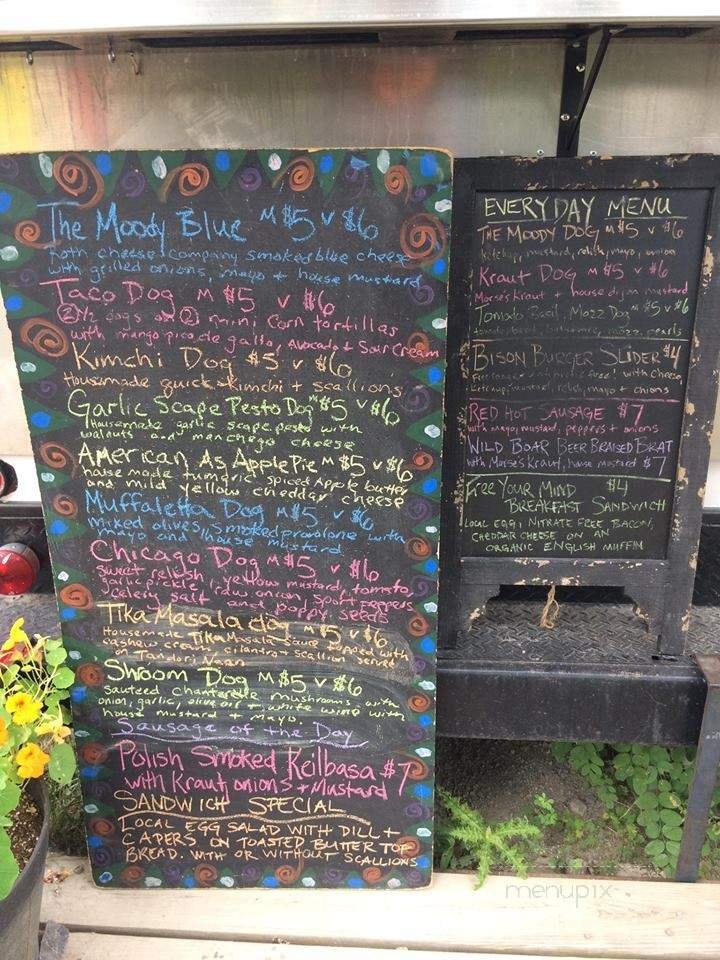 The Moody Blue M $5 V $6
Roth cheese company smoked blue cheese
with grilled onions, mayo + house mustard
Taco Dog M $5 V $6
2 1/2 dogs on 2 mini corn tortillas
with mango pico de gallo, Avocado + Sour Cream
Kimchi Dog $5 V $6
Housemade quick kimchi + scallions
Garlic Scape Pesto Dog M $5 V $6
Housemade garlic scape pesto with
walnuts and manchego cheese
American As Apple Pie M $5 V $6
house made tumeric spiced Apple butter
and mild yellow cheddar cheese
Muffaletta Dog M $5 V $6
mixed olives, smoked provalone with
mayo and house mustard
Chicago Dog M $5 V $6
sweet relish, yellow mustard, tomato,
garlic pickle, raw onion, sport peppers
celery salt and poppy seeds
Tika Masala dog M $5 V $6
Housemade Tika Masala sauce topped with
cashew cream, cilantro + scallion served
on Tandori Naan
Shroom Dog M $5 V $6
sauteed chanterelle mushrooms with
onion, garlic, olive oil + white wine with
house mustard + mayo.
Sausage of the Day
Polish Smoked Keilbasa $7
with Kraut, onions + Mustard
SANDWICH SPECIAL
LOCAL EGG SALAD WITH DILL +
CAPERS ON TOASTED BUTTER TOP
BREAD. WITH OR WITHOUT SCALLIONS
EVERYDAY MENU
THE MOODY DOG M $5 V $6
ketchup, mustard, relish, mayo, onion
Kraut DOG M $5 V $6
Morses Kraut + house dijon mustard
Tomato, Basil, Mozz Dog M $5 V $6
balsamic, mozz. pearls
BISON BURGER SLIDER $4
free! with cheese,
ketchup, mustard, relish, mayo + onions
RED HOT SAUSAGE $7
with mayo, mustard, peppers + onions
WILD BOAR BEER BRAISED BRAT
with Morses Kraut, house mustard $7
FREE YOUR MIND $4
BREAKFAST SANDWICH
LOCAL EGG, NITRATE FREE BACON,
CHEDDAR CHEESE ON AN
ORGANIC ENGLISH MUFFIN
menupix